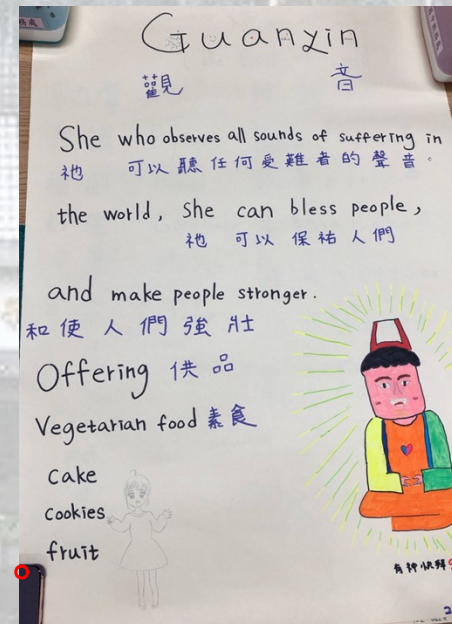 Guanyin
觀 音
She who observes all sounds of suffering in
祂 可以聽任何受難者的聲音。
the world, She can bless people,
祂 可以 保祐 人們
and make people stronger.
和使人們強壯
Offering 供品
Vegetarian food 素食
cake
cookies
fruit
有神快拜
2